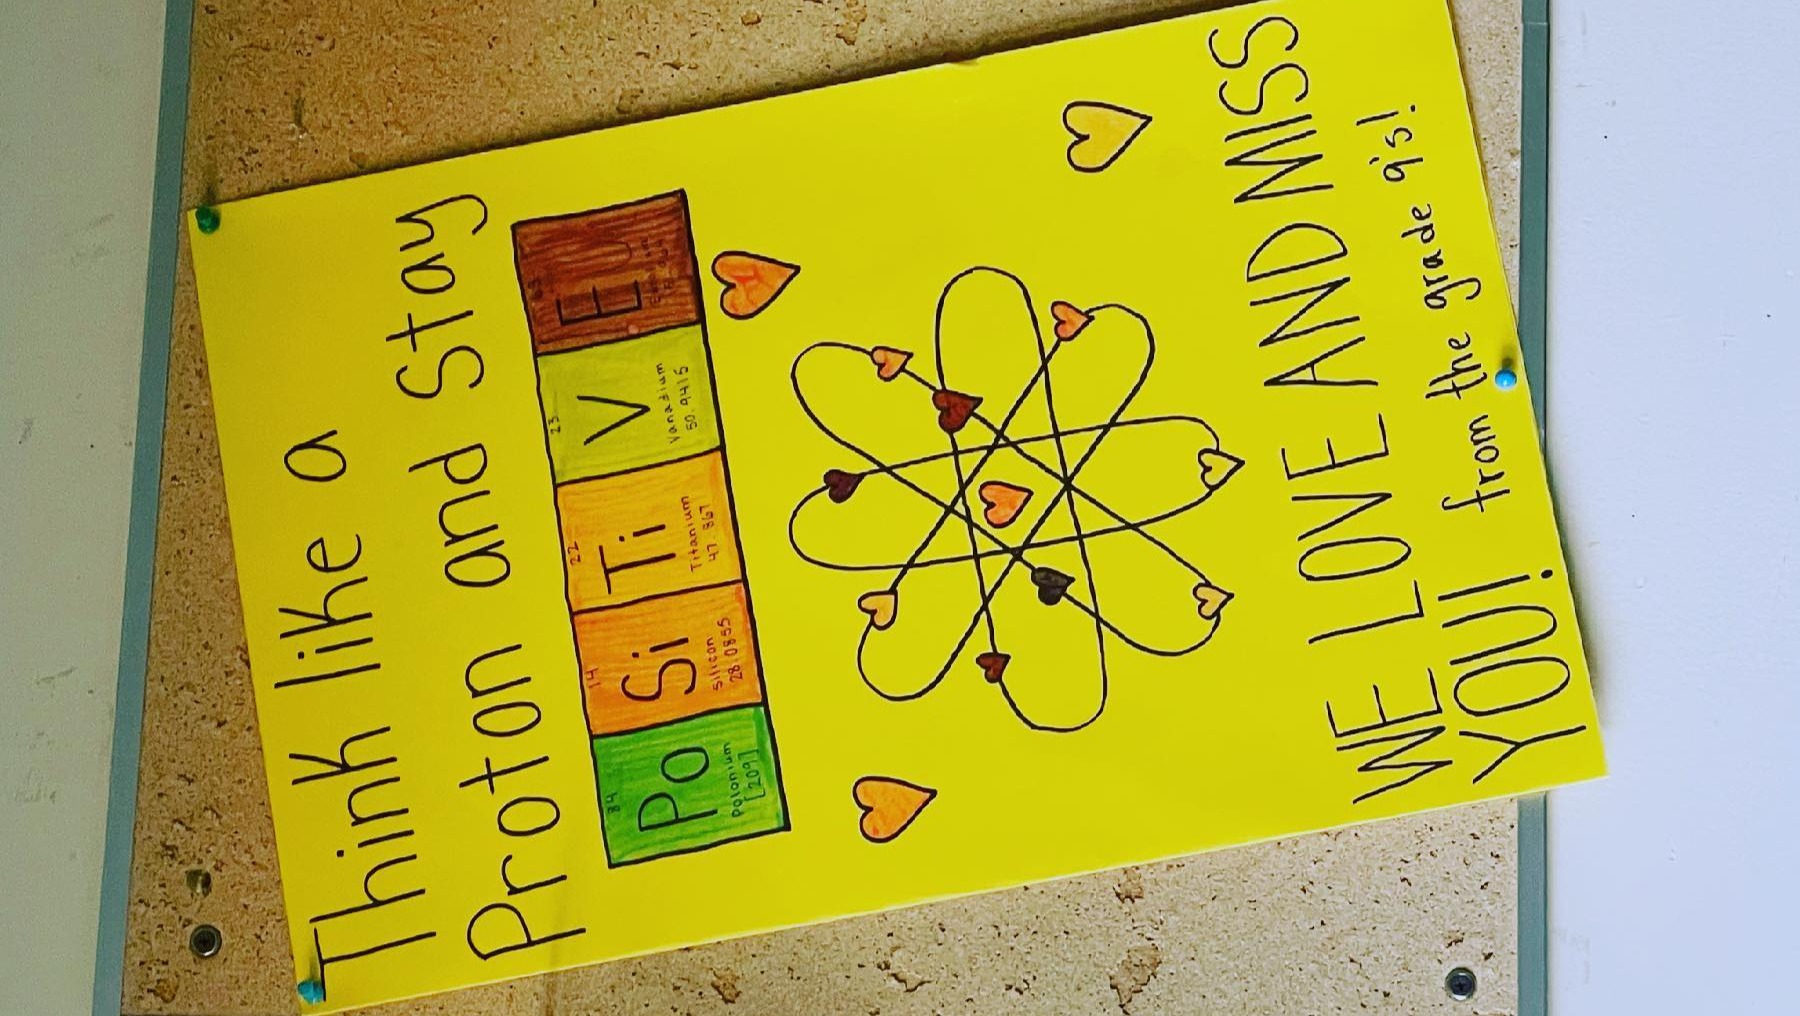 Think like a
Proton and Stay
84 14 22 23 63
Po Si Ti V EU
Polonium Silicon Titanium Vanadium
[209] 28.0855 47.867 50.9415
WE LOVE AND MISS
YOU! from the grade 9's!